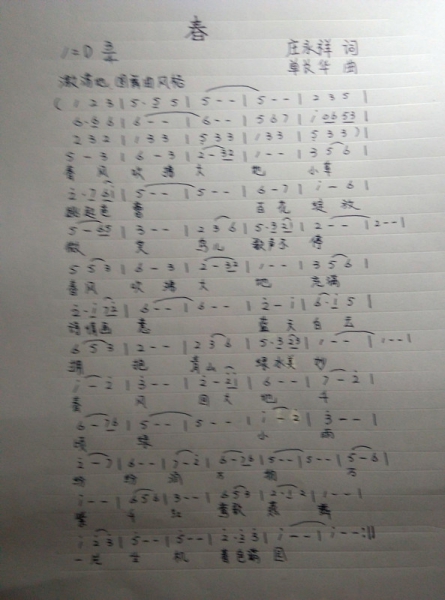 春
1=D 3/4
庄永祥 词
单长华 曲
激满地 圆舞曲风格
( 1 2 3 | 5·5 5 | 5 - - | 5 - - | 2 3 5 |
6·6 6 | 6 - - | 6 - - | 5 6 7 | i 0653 |
2 3 2 | 1 3 3 | 5 3 3 | 1 3 3 | 5 3 3 ) |
5 - 3 | 6 - 3 | 2 - 32 | 1 - - | 3 5 6 |
春 风 吹 拂 大 地 小草
5 - - | 5 - - | 6 - 7 | i - 6 |
百花 绽 放
5 - 65 | 3 - - | 2 3 6 | 5·3 2 | 2 - - | 2 - - |
微 笑 鸟儿 歌声 停
5 5 3 | 6 - 3 | 2 - 32 | 1 - - | 3 5 6 |
春 风 吹 拂 大 地 充满
6 - - | 6 - - | 2 - i | 6·i 5 |
诗情画 意 蓝 天 白 云
6 5 3 | 2 - - | 2 3 6 | 5·3 23 | 1 - - | 1 - - |
青山 绿水 美 妙
i - 2 | 3 - - | 2 - 2i | 6 - - | 7 - 2 |
春 风 回 大 地
6 - 76 | 5 - - | 5 - - | i - 2 | 3 - - |
小 雨
2 - 7 | 6 - - | 7 - 2 | 6 - 76 | 5 - - | 5 - - | 5 - 6 |
万 物 万
i - - | 6 5 6 | 3 - - | 6 5 3 | 2·1 2 | 1 - - |
紫 千 红 莺歌 燕 舞
i 2 3 | 5 - - | 5 - - | 2·3 3 | i - - | i - - :||
一 片 生 机 春色满 园